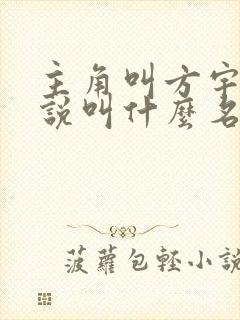 主角叫方宇
說叫什麼名
菠蘿包輕小說